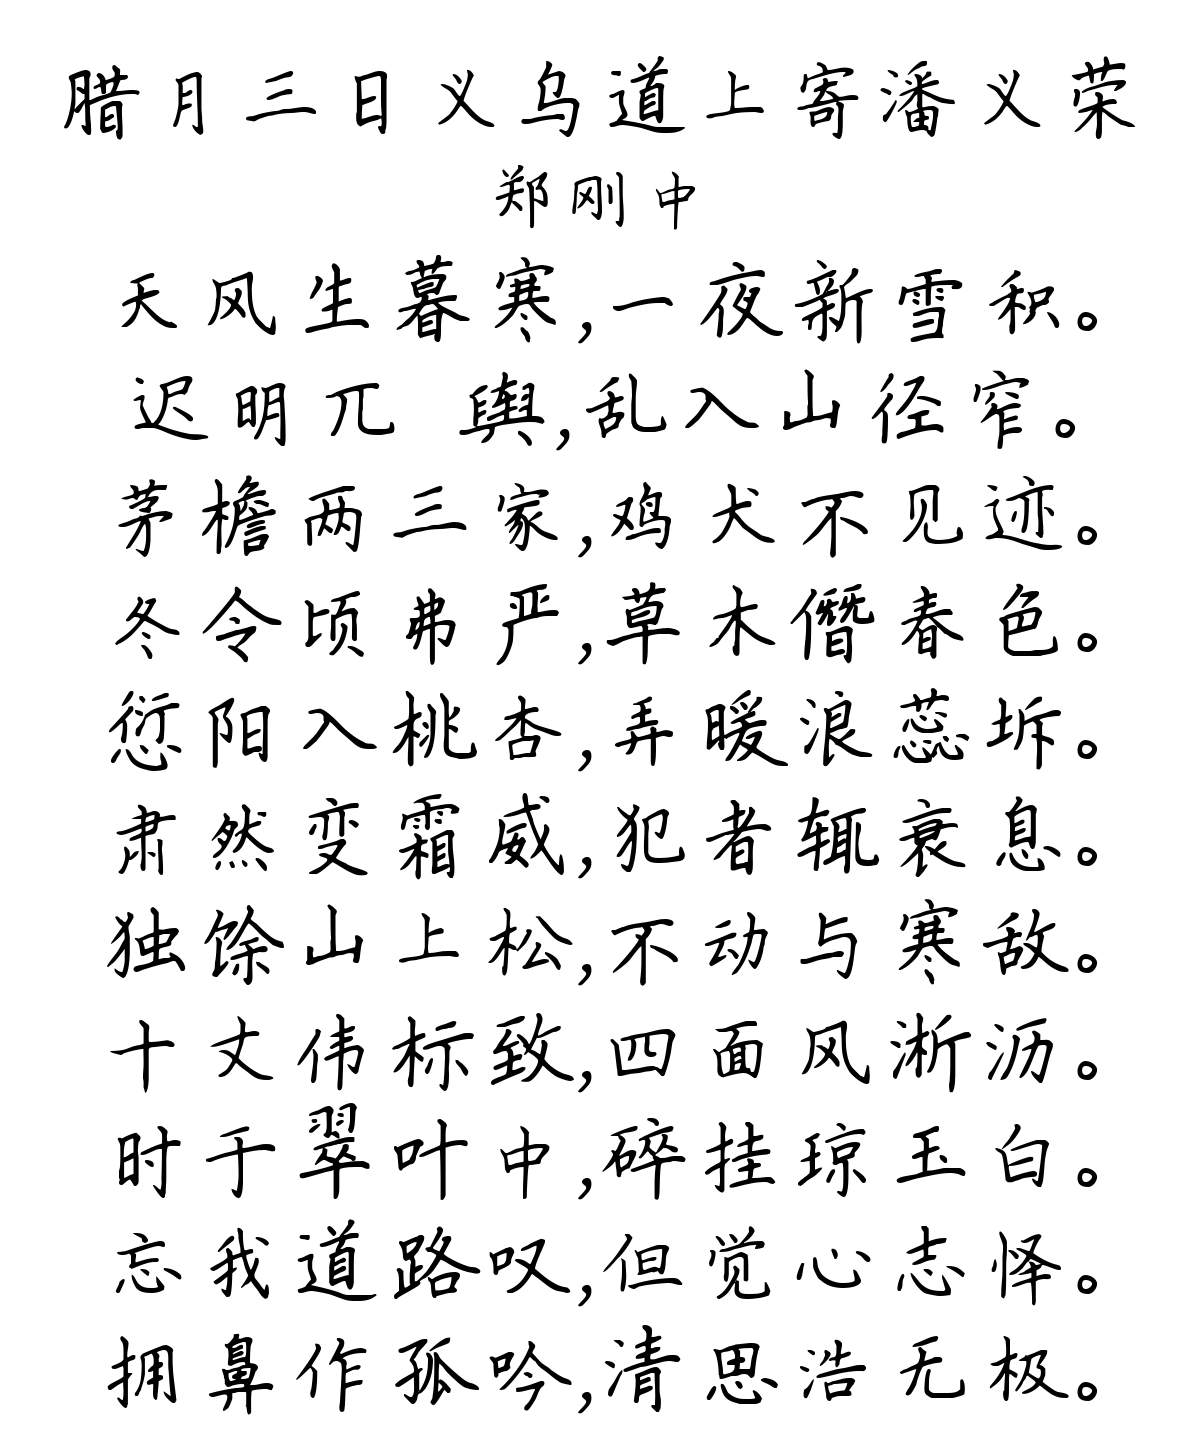 腊月三日义乌道上寄潘义荣
郑刚中
天风生暮寒,一夜新雪积。
迟明兀 舆,乱入山径窄。
茅檐两三家,鸡犬不见迹。
冬令顷弗严,草木僭春色。
愆阳入桃杏,弄暖浪蕊坼。
肃然变霜威,犯者辄衰息。
独馀山上松,不动与寒敌。
十丈伟标致,四面风淅沥。
时于翠叶中,碎挂琼玉白。
忘我道路叹,但觉心志怿。
拥鼻作孤吟,清思浩无极。